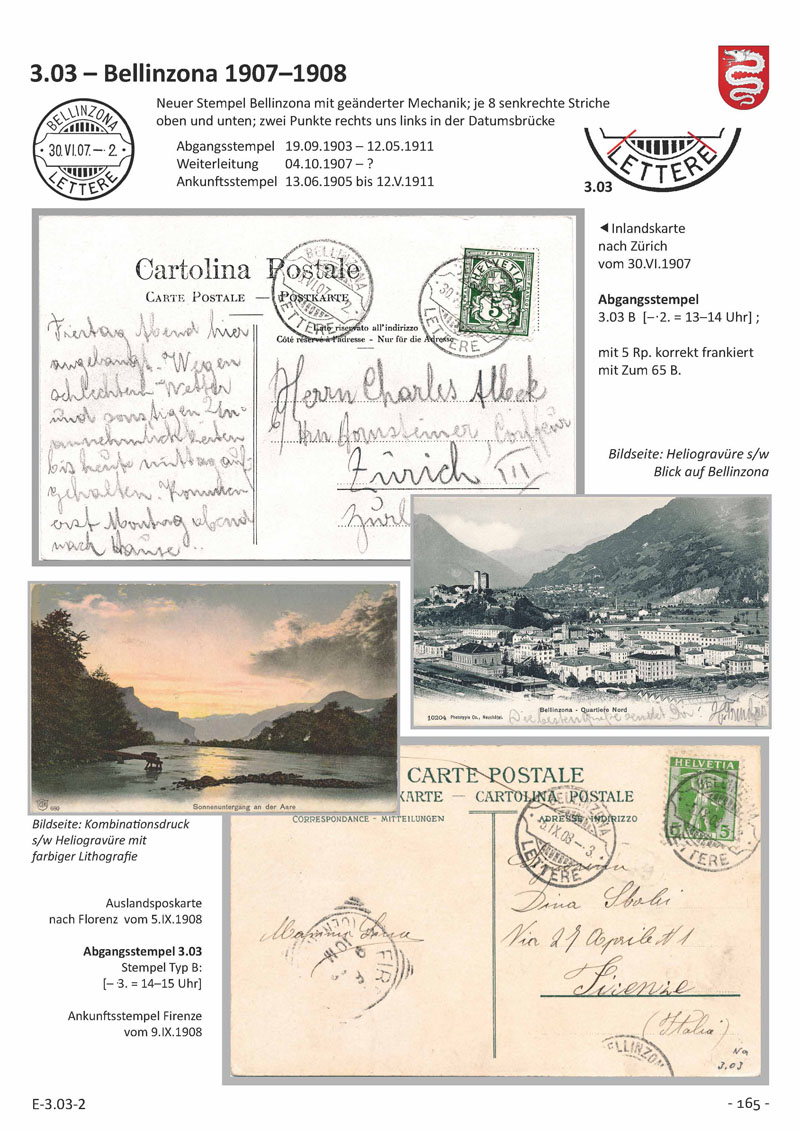 3.03 – Bellinzona 1907–1908
BELLINZONA
· 30.VI.07. – · 2. ·
LETTERE
Neuer Stempel Bellinzona mit geänderter Mechanik; je 8 senkrechte Striche
oben und unten; zwei Punkte rechts uns links in der Datumsbrücke
Abgangsstempel 19.09.1903 – 12.05.1911
Weiterleitung 04.10.1907 – ?
Ankunftsstempel 13.06.1905 bis 12.V.1911
LETTERE
3.03
Cartolina Postale
CARTE POSTALE — POSTKARTE
Lato riservato all'indirizzo
Côté réservé à l'adresse - Nur für die Adresse
BELLINZONA
VI.07. 2.
LETTERE
HELVETIA
5
30.
LETTERE
Freitag Abend hier
angelangt. Wegen
schlechtem Wetter
und sonstigen Un-
annehmlichkeiten
bis heute mittag auf-
gehalten. Kommen
erst Montag abend
nach Hause..
Herrn Charles Albeck
Hornsteiner, Coiffeur
Zürich III
◄ Inlandskarte
nach Zürich
vom 30.VI.1907
Abgangsstempel
3.03 B [–·2. = 13–14 Uhr] ;
mit 5 Rp. korrekt frankiert
mit Zum 65 B.
Bildseite: Heliogravüre s/w
Blick auf Bellinzona
Bellinzona - Quartiere Nord
10204 Phototypie Co., Neuchâtel.
Sonnenuntergang an der Aare
Bildseite: Kombinationsdruck
s/w Heliogravüre mit
farbiger Lithografie
CARTE POSTALE
KARTE — CARTOLINA POSTALE
CORRESPONDANCE - MITTEILUNGEN
ADRESSE-INDIRIZZO
BELLINZONA
5.IX.08 – 3
LETTERE
HELVETIA
5 5
LETTERE
Dina
Via 27 Aprile N1
Firenze
(Italia)
FIR
ELLINZON
No
3.03
Auslandsposkarte
nach Florenz vom 5.IX.1908
Abgangsstempel 3.03
Stempel Typ B:
[– 3. = 14–15 Uhr]
Ankunftsstempel Firenze
vom 9.IX.1908
E-3.03-2
- 165 -